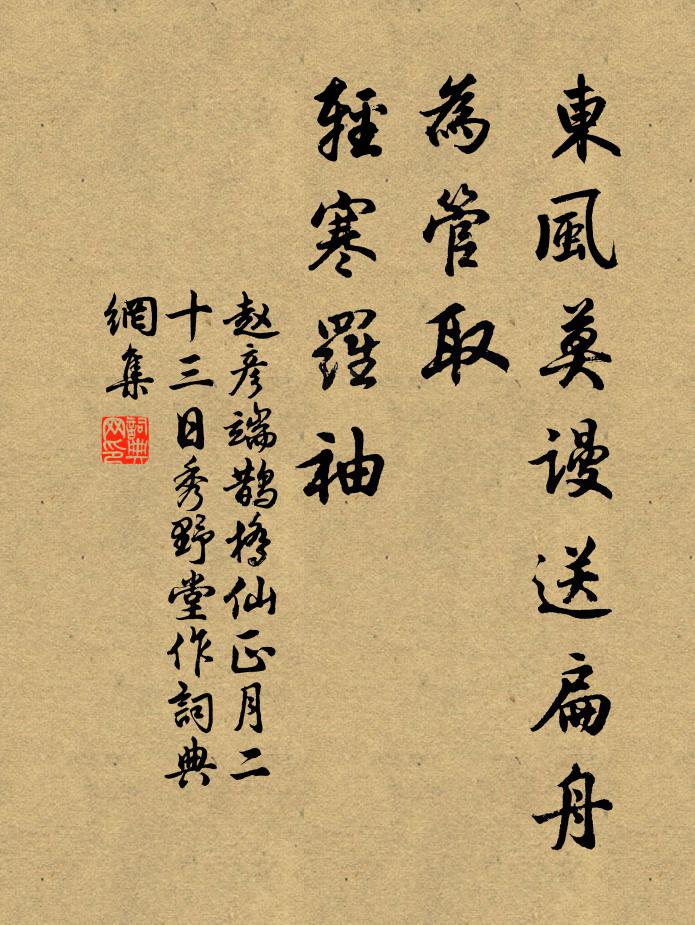 東風莫謾送扁舟
為管取
輕寒羅袖
赵彦端鵲橋仙正月二
十三日秀野堂作詞典
網集
詞典
网印